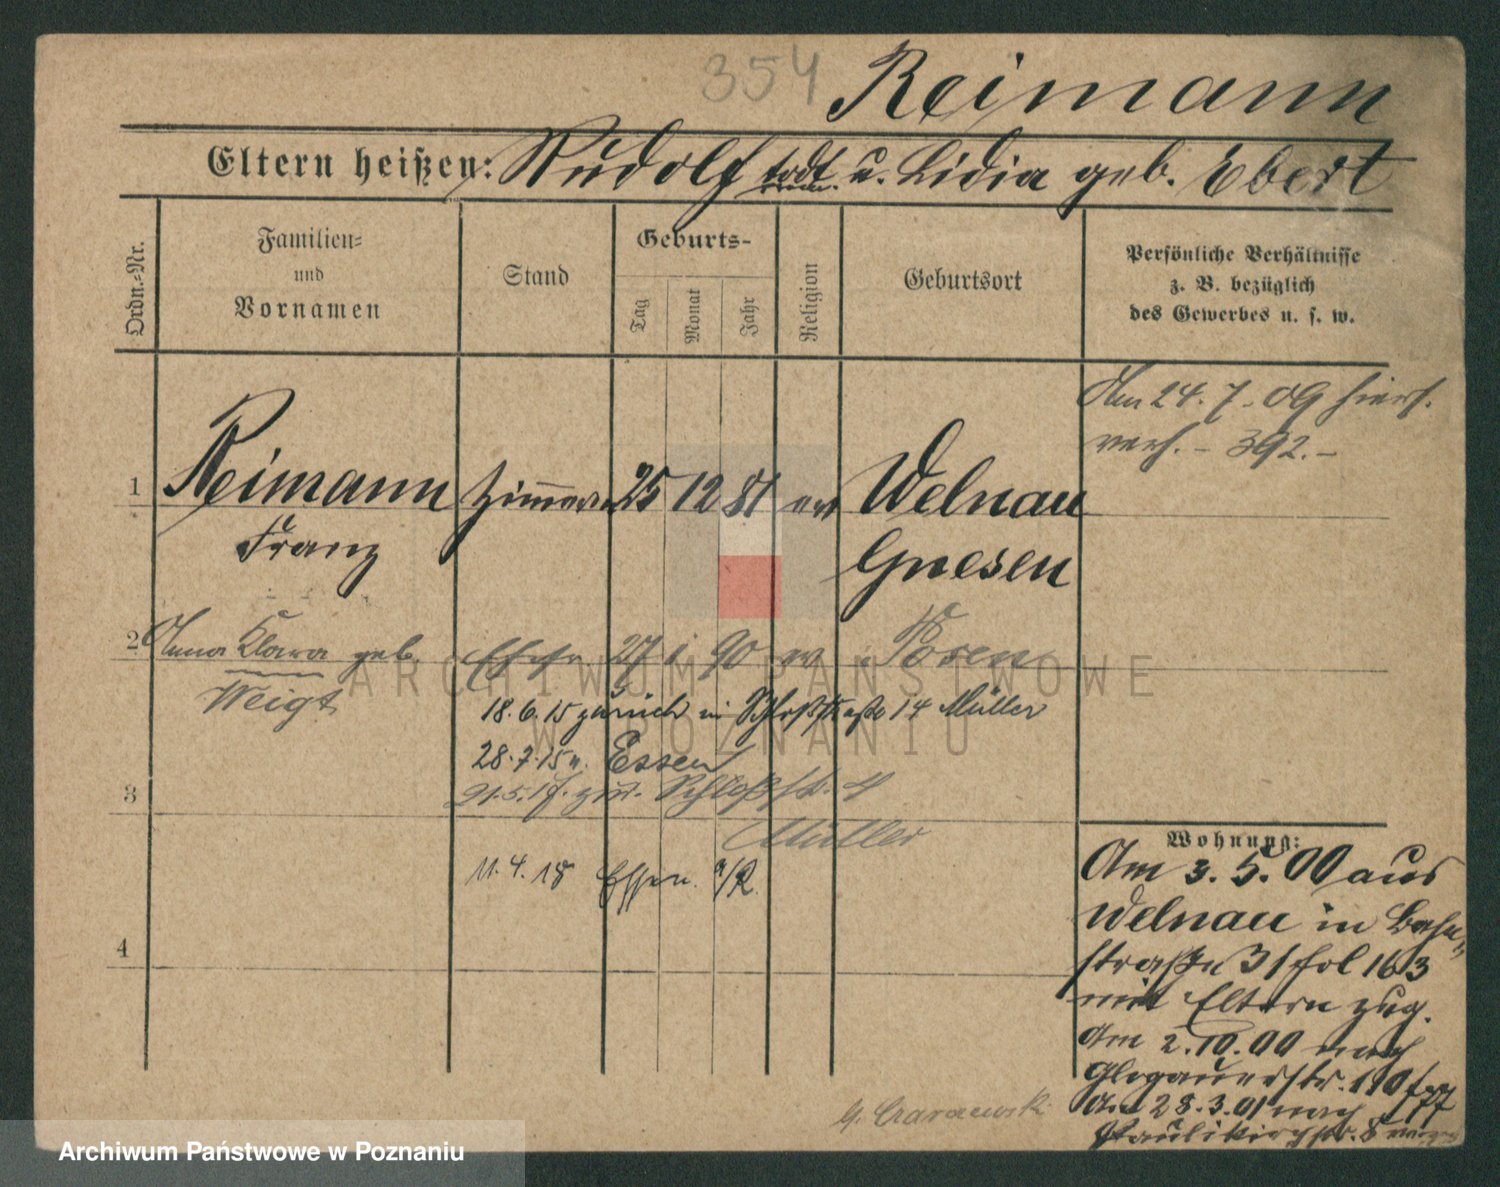 354 Reimann
Eltern heißen: Rudolf todt u. Lidia geb. Ebert
Ordn.-Nr.
Familien-
und
Vornamen
Stand
Geburts-
Tag
Monat
Jahr
Religion
Geburtsort
Persönliche Verhältnisse
z. B. bezüglich
des Gewerbes u. s. w.
Am 24. 7. 09 hiers.
verh. - 392. -
1 Reimann Zimmerer 25 12 81 ev Welnau
Franz Gnesen
2 Anna Klara geb. Ehefr. 27 1 90 ev. Posen
Weigt
18. 6. 15 zurück in Schloßstraße 14 Müller
28. 7. 15 n. Essen
3 21. 5. 17. zur. Schloßstr. 4
Müller
11. 4. 18 Essen a/R.
4
Wohnung:
Am 3. 5. 00 aus
Welnau in Bahn-
straße 31 fol 163
mit Eltern zug.
Am 2. 10. 00 nach
Glogauerstr. 110 f 77
Am 28. 3. 01 nach
Paulikirchstr. 8
ARCHIWUM PAŃSTWOWE
W POZNANIU
Archiwum Państwowe w Poznaniu